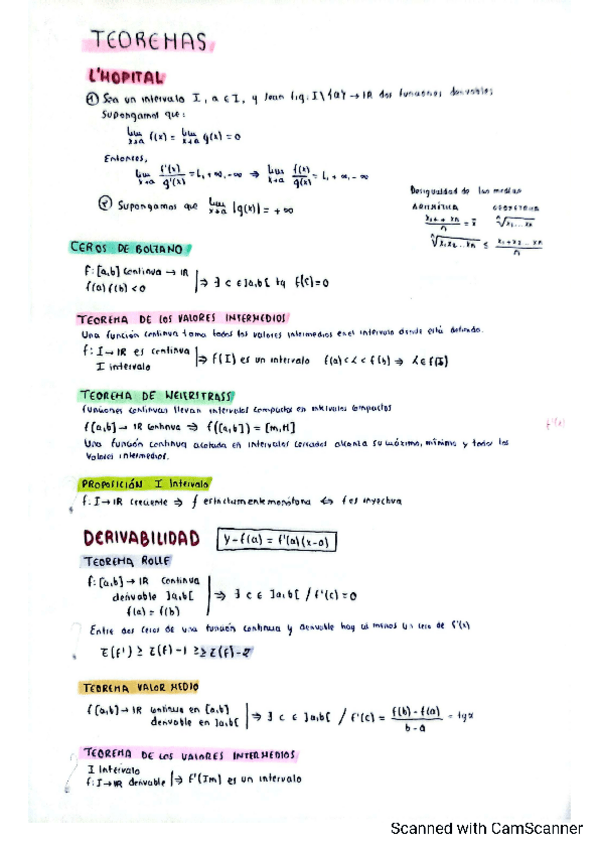 TEOREMAS
L'HOPITAL
① Sea un intervalo I, a ∈ I, y sean f,g: I\{a} → IR dos funciones derivables
Supongamos que:
lim x→a f(x) = lim x→a g(x) = 0
Entonces,
lim x→a f'(x)/g'(x) = L, +∞, -∞ ⇒ lim x→a f(x)/g(x) = L, +∞, -∞
② Supongamos que lim x→a |g(x)| = +∞
Desigualdad de las medias
ARITMÉTICA GEOMETRICA
x₁+...+xn/n = x̄ ⁿ√x₁...xn
ⁿ√x₁x₂...xn ≤ x₁+x₂...xn/n
CEROS DE BOLZANO
f: [a,b] continua → IR
f(a) f(b) < 0 ⇒ ∃ c ∈ ]a,b[ tq f(c)=0
TEOREMA DE LOS VALORES INTERMEDIOS
Una función continua toma todos los valores intermedios en el intervalo donde está definida.
f: I → IR es continua
I intervalo ⇒ f(I) es un intervalo f(a)<λ<f(b) ⇒ λ∈f(I)
TEOREMA DE WEIERSTRASS
funciones continuas llevan intervalos compactos en intervalos compactos
f[a,b] → IR continua ⇒ f([a,b]) = [m,M]
f'(x)
Una función continua acotada en intervalos cerrados alcanza su máximo, mínimo y todos los
valores intermedios.
PROPOSICIÓN I Intervalo
f: I → IR creciente ⇒ f estrictamente monótona ⇔ f es inyectiva
DERIVABILIDAD y-f(a) = f'(a)(x-a)
TEOREMA ROLLE
f: [a,b] → IR continua
derivable ]a,b[ ⇒ ∃ c ∈ ]a,b[ / f'(c) = 0
f(a) = f(b)
Entre dos ceros de una función continua y derivable hay al menos un cero de f'(x)
Z(f') ≥ Z(f)-1 ≥ Z(f)-2
TEOREMA VALOR MEDIO
f[a,b] → IR continua en [a,b]
derivable en ]a,b[ ⇒ ∃ c ∈ ]a,b[ / f'(c) = f(b)-f(a)/b-a = tgα
TEOREMA DE LOS VALORES INTERMEDIOS
I Intervalo
f: I → IR derivable ⇒ f'(Im) es un intervalo
Scanned with CamScanner